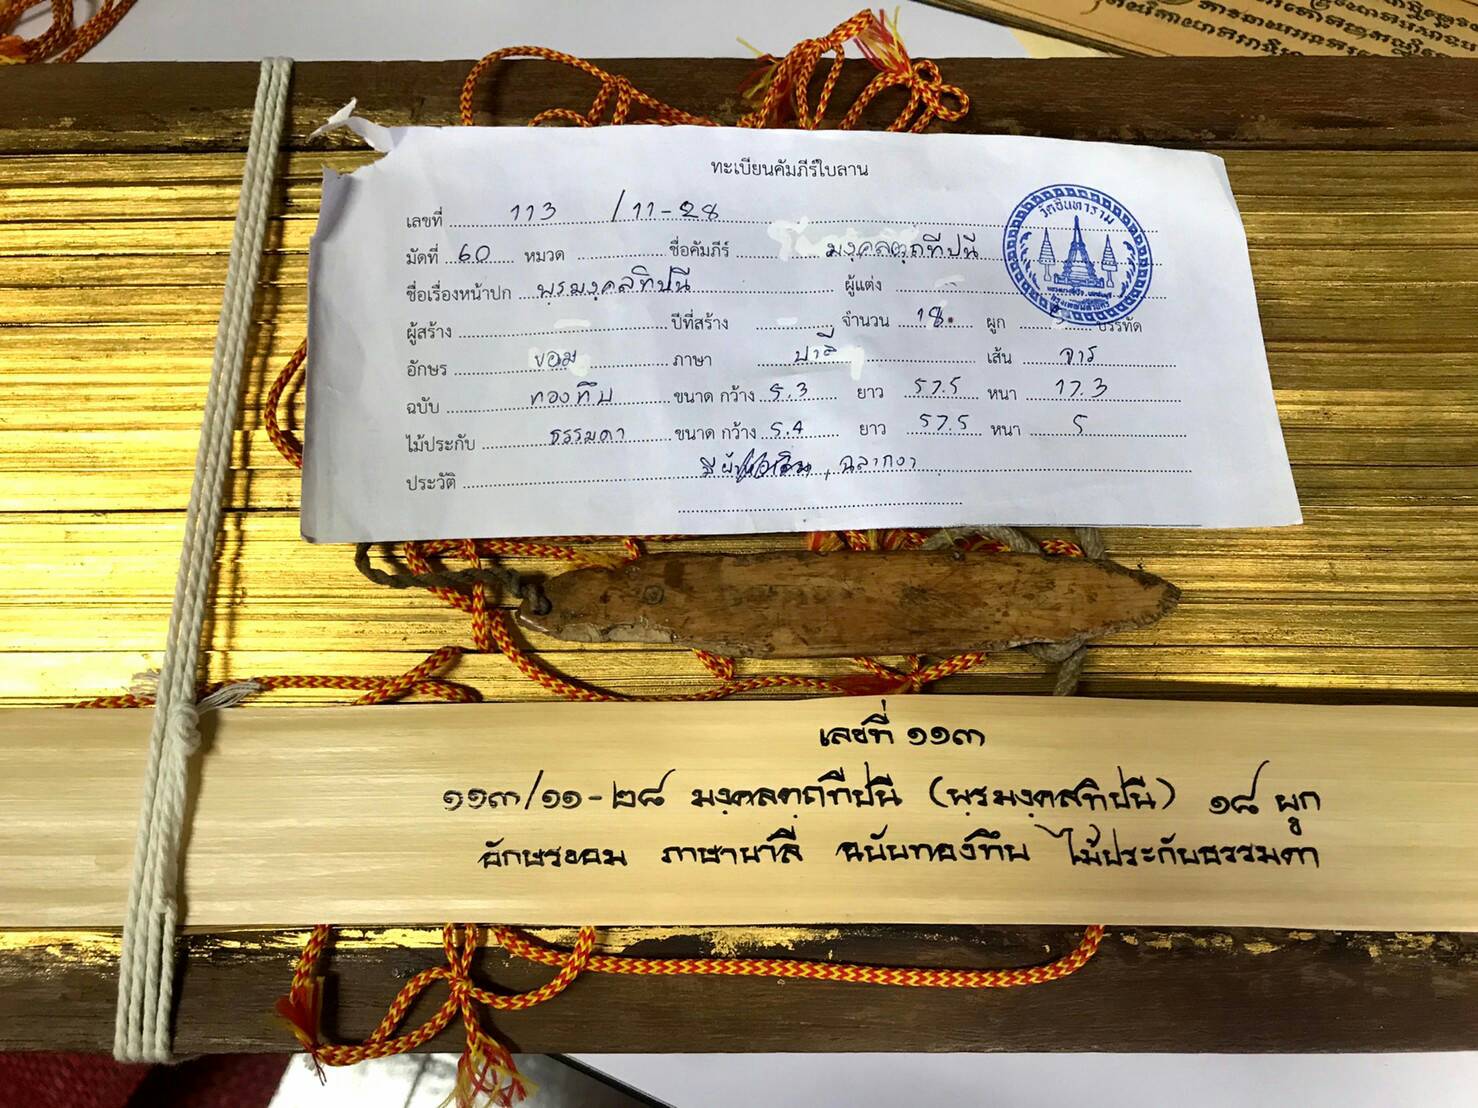 ทะเบียนคัมภีร์ใบลาน
เลขที่ 113 /11-28
มัดที่ 60 หมวด ชื่อคัมภีร์ มงฺคลตฺถทีปนี
ชื่อเรื่องหน้าปก พฺรมงฺคสทิปนี ผู้แต่ง -
ผู้สร้าง - ปีที่สร้าง - จำนวน 18 ผูก 5 บรรทัด
อักษร ขอม ภาษา บาลี เส้น จาร
ฉบับ ทองทึบ ขนาด กว้าง 5.3 ยาว 57.5 หนา 17.3
ไม้ประกับ ธรรมดา ขนาด กว้าง 5.4 ยาว 57.5 หนา 5
ประวัติ ฉลากงา
วัดอินทาราม
เลขที่ ๑๑๓
๑๑๓/๑๑-๒๘ มงฺคลตฺถทีปนี (พฺรมงฺคสทิปนี) ๑๘ ผูก
อักษรขอม ภาษาบาลี ฉบับทองทึบ ไม้ประกับธรรมดา